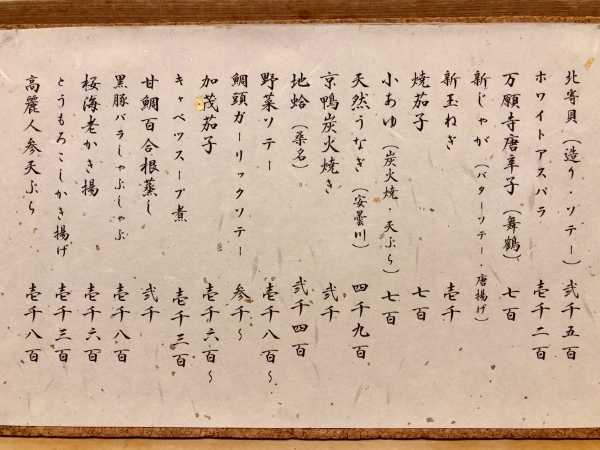 北寄貝（造り・ソテー） 弐千五百
ホワイトアスパラ 壱千二百
万願寺唐辛子（舞鶴） 七百
新じゃが（バターソテー 唐揚げ）
新玉ねぎ 壱千
焼茄子 七百
小あゆ（炭火焼・天ぷら） 七百
天然うなぎ（安曇川） 四千九百
京鴨炭火焼き 弐千
地蛤（桑名） 弐千四百
野菜ソテー 壱千八百～
鯛頭ガーリックソテー 参千～
加茂茄子 壱千六百～
キャベツスープ煮 壱千三百
甘鯛百合根蒸し 弐千
黒豚バラしゃぶしゃぶ 壱千八百
桜海老かき揚 壱千六百
とうもろこしかき揚げ 壱千三百
高麗人参天ぷら 壱千八百